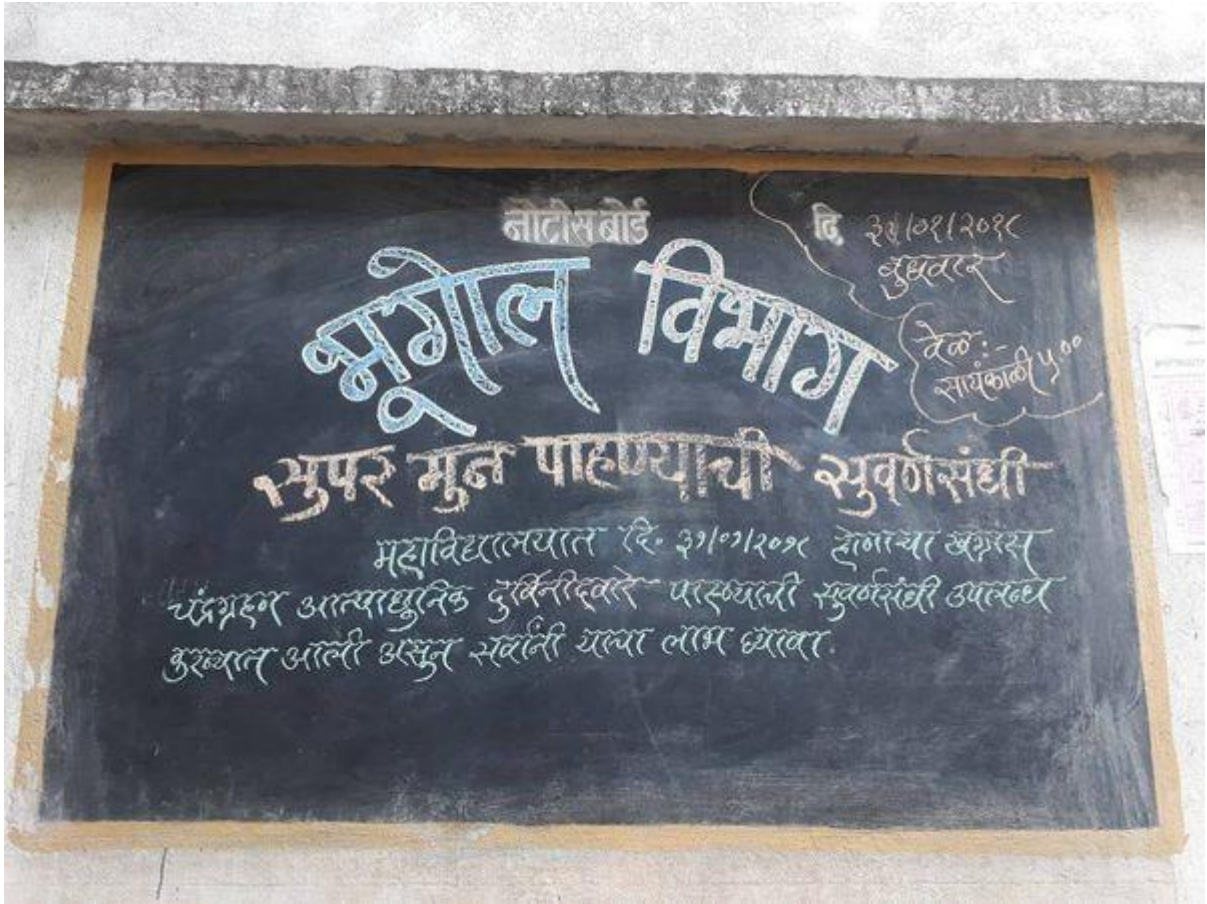 नोटीस बोर्ड
दि. ३१/०१/२०१८
बुधवार
वेळ :-
सायंकाळी ५.००
भूगोल विभाग
सुपर मुन पाहण्याची सुवर्णसंधी
महाविद्यालयात दि. ३१/०१/२०१८ होणाऱ्या खग्रास
चंद्रग्रहण अत्याधुनिक दुर्बिनीदवारे पाहण्याची सुवर्णसंधी उपलब्ध
करण्यात आली असुन सर्वांनी याचा लाभ घ्यावा.